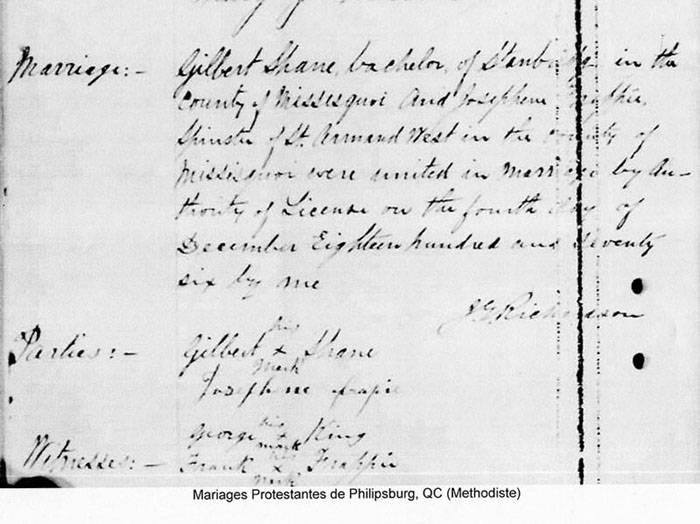 Marriage:- Gilbert Shane, bachelor, of Stanbridge in the
County of Missisquoi And Josephene Frappie,
Spinster of St. Armand West in the County of
Missisquoi were united in Marriage by Au-
thority of License on the fourth day of
December Eighteen hundred and Seventy
six by me
J G Richardson
his
Parties:- Gilbert x Shane
mark
Josephene frapie
his
George + King
mark
Witnesses:- Frank x Frappie
mark
Mariages Protestantes de Philipsburg, QC (Methodiste)